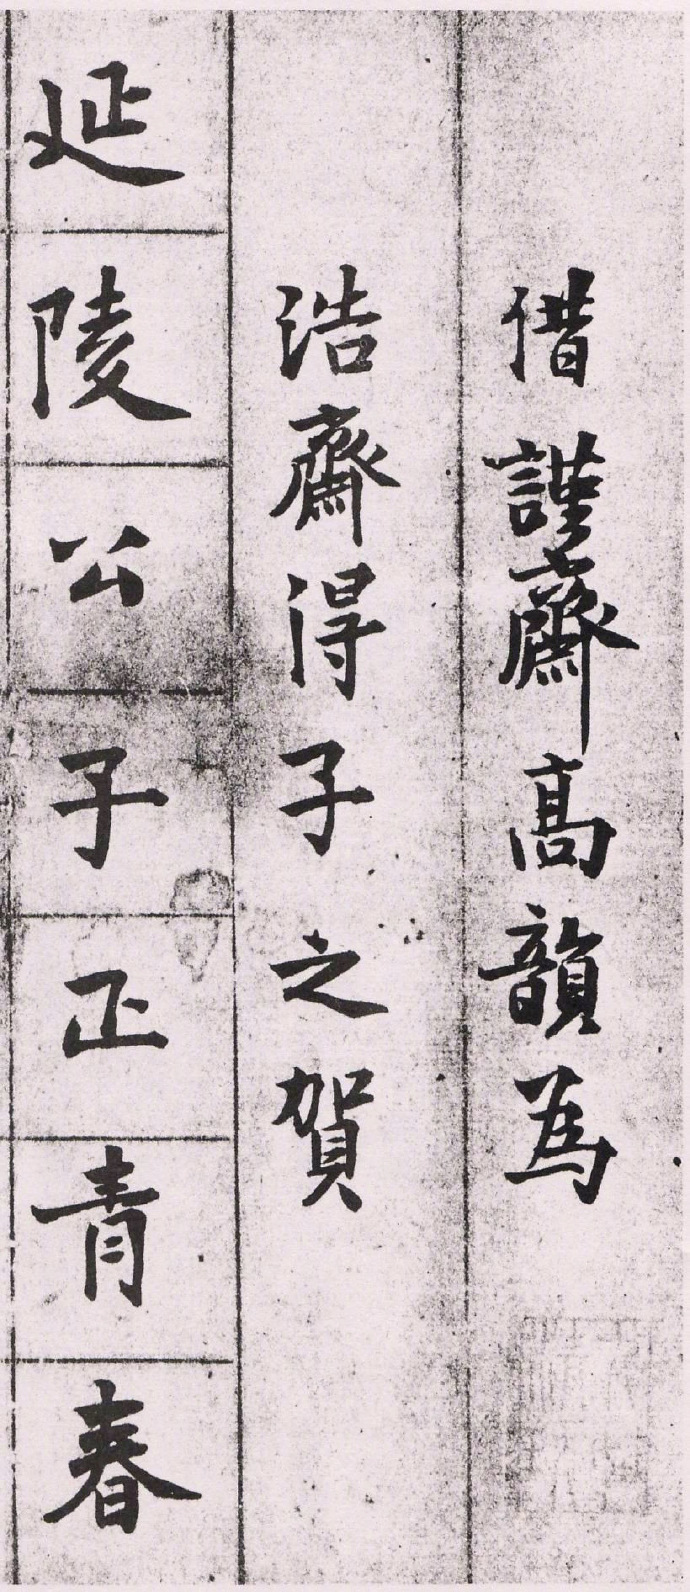 借謹齋髙韻為
浩齋得子之賀
延陵公子正青春